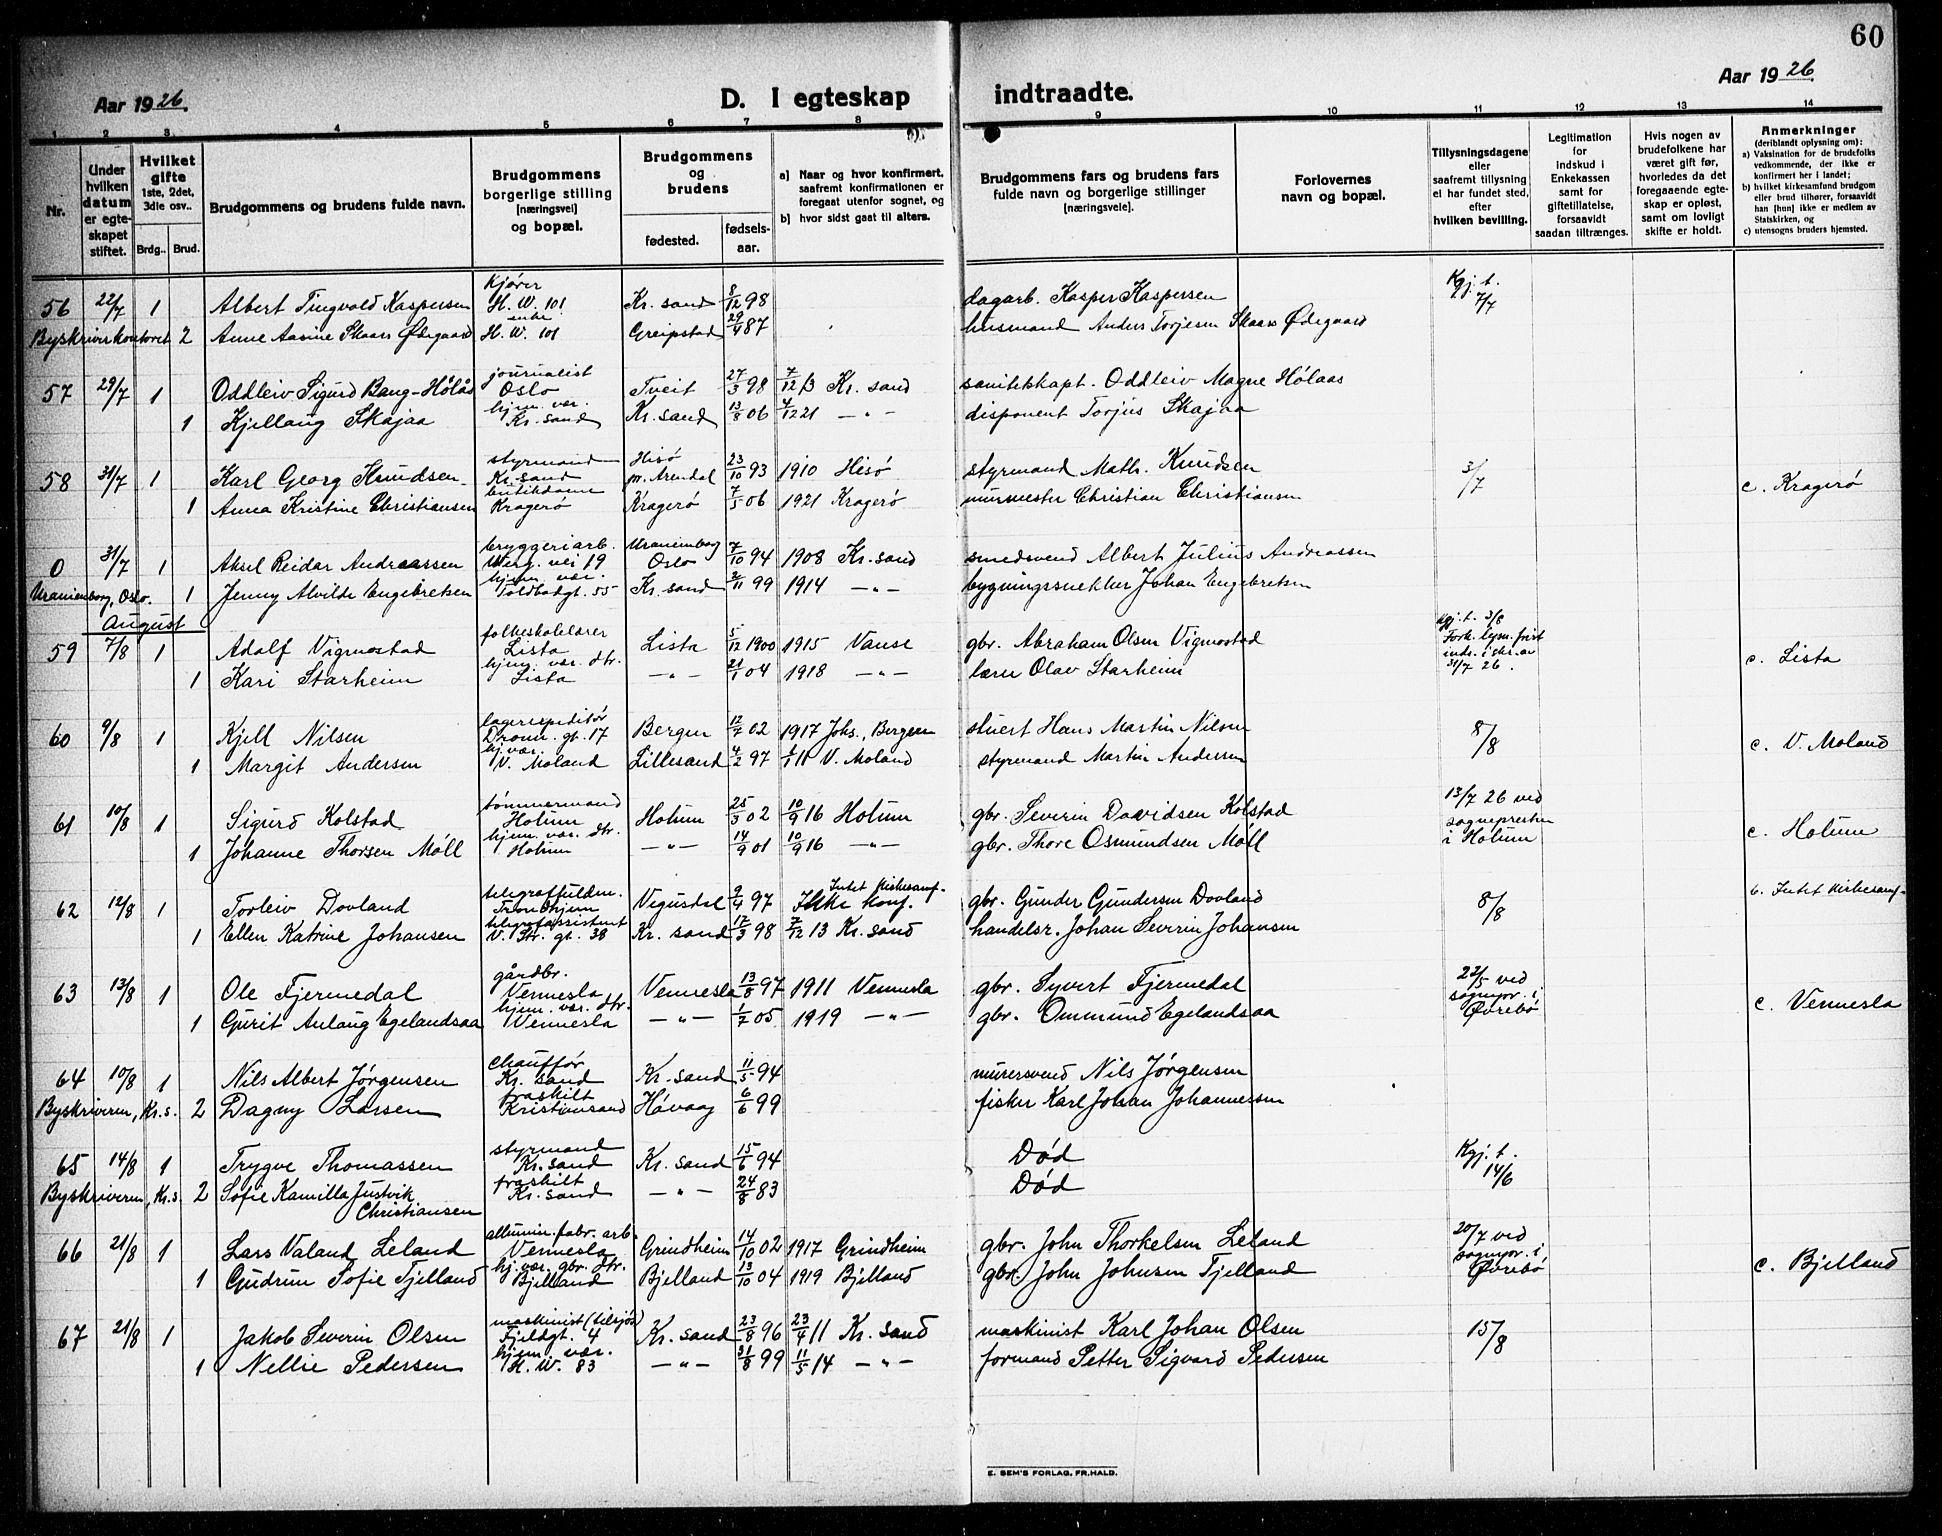 60
Aar 1926. D. I egteskap indtraadte. Aar 1926.
1 2 3 4 5 6 7 8 9 10 11 12 13 14
Nr.
Under hvilken datum er egteskapet stiftet.
Hvilket gifte 1ste, 2det, 3die osv..
Brdg.. Brud.
Brudgommens og brudens fulde navn.
Brudgommens borgerlige stilling [næringsvei] og bopæl.
Brudgommens og brudens
fødested. fødselsaar.
a) Naar og hvor konfirmert, saafremt konfirmationen er foregaat utenfor sognet, og
b) hvor sidst gaat til alters.
Brudgommens fars og brudens fars fulde navn og borgerlige stillinger [næringsveie].
Forlovernes navn og bopæl.
Tillysningsdagene eller saafremt tillysning ei har fundet sted, efter hvilken bevilling.
Legitimation for indskud i Enkekassen samt for giftetillatelse, forsaavidt saadan tiltrænges.
Hvis nogen av brudefolkene har været gift før, hvorledes da det foregaaende egteskap er opløst, samt om lovligt skifte er holdt.
Anmerkninger (deriblandt oplysning om):
a) Vaksination for de brudefolks vedkommende, der ikke er konfirmert her i landet;
b) hvilket kirkesamfund brudgom eller brud tilhører, forsaavidt han [hun] ikke er medlem av Statskirken, og
c) utensogns bruders hjemsted.
56 22/7 1 Albert Tingvald Kaspersen Kjører H. W. 101 Kr. sand 8/12 98 dagarb. Kasper Kaspersen Kgj. t. 7/7
Byskriverkontoret 2 Anne Aasine Skaar Ødegaard enke H. W. 101 Greipstad 29/4 87 husmand Anders Torjesen Skaar Ødegaard
57 29/7 1 Oddleiv Sigurd Bang-Hølås journalist Oslo Tveit 27/3 98 7/12 13 Kr. sand sanitetskapt. Oddleiv Magne Hølaas
1 Kjellaug Skajaa hjem. vær. Kr. sand Kr. sand 13/8 06 4/12 21 — " — disponent Torjus Skajaa
58 31/7 1 Karl Georg Knudsen styrmand Kr. sand Hisø pr. Arendal 23/10 93 1910 Hisø styrmand Math. Knudsen 3/7
1 Anna Kristine Christiansen butikdame Kragerø Kragerø 7/5 06 1921 Kragerø murmester Christian Christiansen c. Kragerø
0 31/7 1 Aksel Reidar Andreassen bryggeriarb. Werg. vei 19 Uranienborg Oslo 7/10 94 1908 Kr. sand smedsvend Albert Julius Andreassen
Uranienborg, Oslo. 1 Jenny Alvilde Engebretsen hjem. vær. Toldbodgt. 55 Kr. sand 2/11 99 1914 — " — bygningssnekker Johan Engebretsen
August
59 7/8 1 Adolf Vigmostad folkeskolelærer Lista Lista 5/12 1900 1915 Vanse gbr. Abraham Olsen Vigmostad Kgj. t. 3/8 Fork. lysn. frist indr. i skr. av 31/7 26.
1 Kari Starheim hjem. vær. dtr. Lista — " — 21/1 04 1918 — " — lærer Olav Starheim c. Lista
60 9/8 1 Kjell Nilsen lagerexpeditør Dronn. gt. 17 Bergen 12/7 02 1917 Johs., Bergen stuert Hans Martin Nilsen 8/8
1 Margit Andersen hj. vær. V. Moland Lillesand 4/2 97 1/11 V. Moland styrmand Martin Andersen c. V. Moland
61 10/8 1 Sigurd Kolstad tømmermand Holum Holum 25/3 02 10/9 16 Holum gbr. Severin Davidsen Kolstad 13/7 26 ved sognepresten i Holum
1 Johanne Thorsen Møll hjem. vær. dtr. Holum — " — 14/9 01 10/9 16 — " — gbr. Thore Osmundsen Møll c. Holum
62 12/8 1 Torleiv Dovland telegraffuldm. Trondhjem Vigusdal 2/4 97 Intet Kirkesamf. Ikke konf. gbr. Gunder Gundersen Dovland 8/8 b. Intet Kirkesamf.
1 Ellen Katrine Johansen telegrafassistent V. Str. gt. 38 Kr. sand 17/3 98 7/12 13 Kr. sand handelsr. Johan Severin Johansen
63 13/8 1 Ole Fjermedal gårdbr. Vennesla Vennesla 13/8 97 1911 Vennesla gbr. Syvert Fjermedal 22/5 ved sognepr. i Øvrebø
1 Gurit Anlaug Egelandsaa hjem. vær. dtr. Vennesla — " — 1/7 05 1919 — " — gbr. Ommund Egelandsaa c. Vennesla
64 10/8 1 Nils Albert Jørgensen chauffør Kr. sand Kr. sand 11/5 94 murersvend Nils Jørgensen
Byskriveren, Kr.s. 2 Dagny Larsen fraskilt Kristiansand Høvaag 6/6 99 fisker Karl Johan Johannessen
65 14/8 1 Trygve Thomassen styrmand Kr. sand Kr. sand 15/6 94 Død Kgj. t. 14/6
Byskriveren, Kr.s. 2 Sofie Kamilla Justvik Christiansen fraskilt Kr. sand — " — 24/8 83 Død
66 21/8 1 Lars Valand Leland allumin. fabr. arb. Vennesla Grindheim 14/10 02 1917 Grindheim gbr. John Thorkelsen Leland 20/7 ved sognepr. i Øvrebø
1 Gudrun Sofie Tjelland hj. vær. gbr. dtr. Bjelland Bjelland 13/10 04 1919 Bjelland gbr. John Johnsen Tjelland c. Bjelland
67 21/8 1 Jakob Severin Olsen maskinist (tilsjøs) Fjeldgt. 4 Kr. sand 23/8 96 23/4 11 Kr. sand maskinist Karl Johan Olsen 15/8
1 Nellie Pedersen hjem. vær. H. W. 83 — " — 31/8 99 11/5 14 — " — formand Petter Sigvard Pedersen
E. SEM'S FORLAG, FR.HALD.